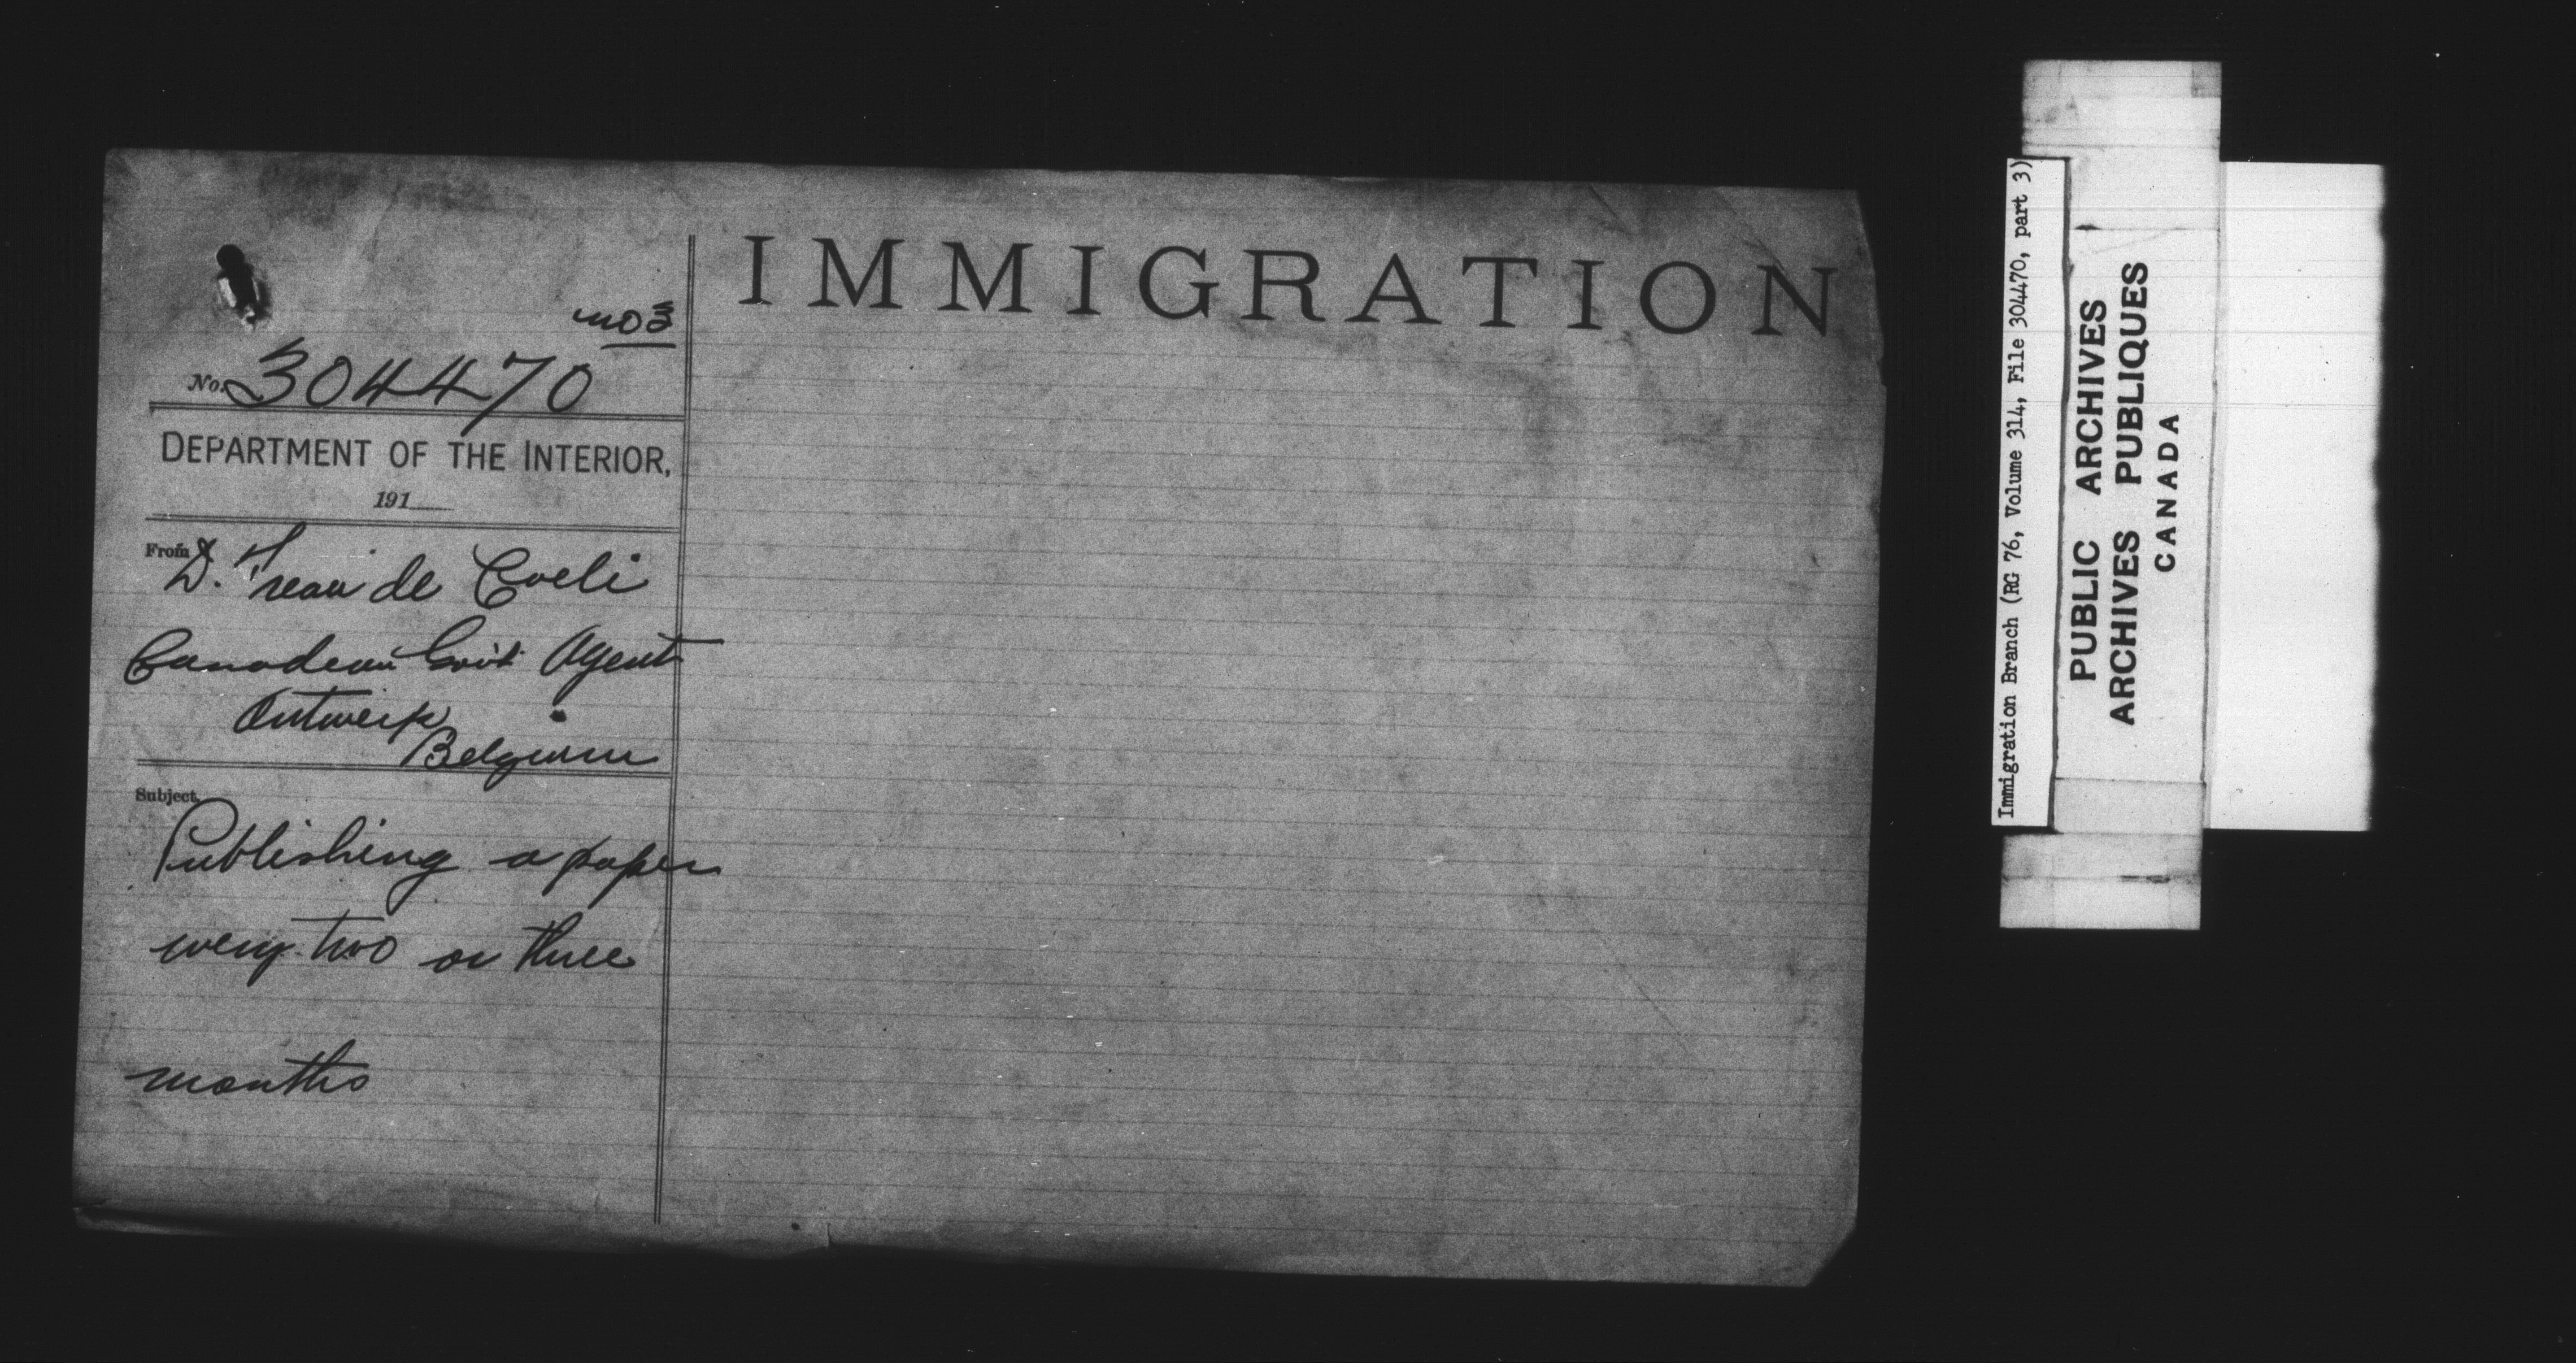 IMMIGRATION
No 3
No. 304470
DEPARTMENT OF THE INTERIOR,
191
From D. Treau de Coeli
Canadian Govt Agent
Antwerp
Belgium
Subject.
Publishing a paper
every two or three
months
Immigration Branch (RG 76, Volume 314, File 304470, part 3)
PUBLIC ARCHIVES
ARCHIVES PUBLIQUES
CANADA